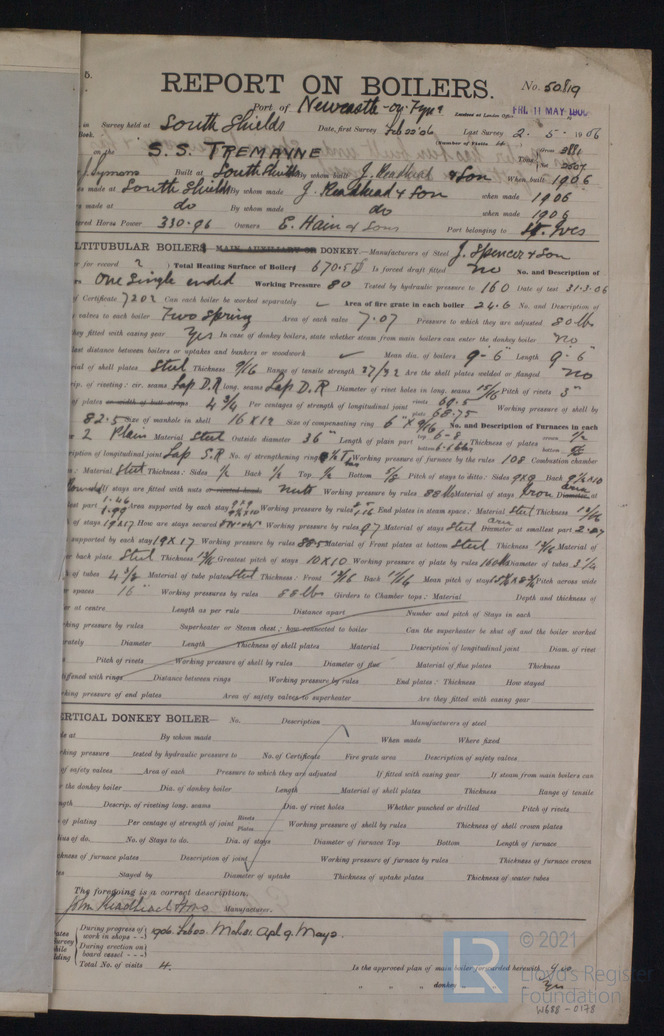 5.
REPORT ON BOILERS.
No. 50819
Port of Newcastle-on-Tyne
Received at London Office FRI. 11 MAY 1906
in Survey held at South Shields Date, first Survey Feb 20 '06 Last Survey 2. 5. 1906
Book. (Number of Visits 4)
on the S.S. TREMAYNE Tons Gross 3881 Net 2507
J. Symons Built at South Shields By whom built J. Readhead & Son When built 1906
made at South Shields By whom made J. Readhead & Son when made 1906
made at do By whom made do when made 1906
Horse Power 330.96 Owners E. Hain & Sons Port belonging to St. Ives
LTITUBULAR BOILERS MAIN, AUXILIARY OR DONKEY.—Manufacturers of Steel J. Spencer & Son
for record Total Heating Surface of Boilers 670.5 Is forced draft fitted no No. and Description of
One Single ended Working Pressure 80 Tested by hydraulic pressure to 160 Date of test 31.3.06
Certificate 7202 Can each boiler be worked separately Area of fire grate in each boiler 24.6 No. and Description of
valves to each boiler Two Spring Area of each valve 7.07 Pressure to which they are adjusted 80 lb
they fitted with easing gear Yes In case of donkey boilers, state whether steam from main boilers can enter the donkey boiler no
distance between boilers or uptakes and bunkers or woodwork Mean dia. of boilers 9'-6" Length 9'-6"
of shell plates Steel Thickness 9/16 Range of tensile strength 27/32 Are the shell plates welded or flanged no
of riveting: cir. seams Lap D.R long. seams Lap D.R Diameter of rivet holes in long. seams 15/16 Pitch of rivets 3"
of plates or width of butt straps 4 3/4 Per centages of strength of longitudinal joint rivets 69.5 plate 68.75 Working pressure of shell by
82.5 Size of manhole in shell 16 x 12 Size of compensating ring 6" x 9/16 No. and Description of Furnaces in each
2 Plain Material Steel Outside diameter 36" Length of plain part top 6-8 bottom Thickness of plates crown 1/2 bottom
of longitudinal joint Lap S.R No. of strengthening rings Working pressure of furnace by the rules 108 Combustion chamber
Material Steel Thickness: Sides 1/2 Back 1/2 Top 1/2 Bottom 5/8 Pitch of stays to ditto: Sides 9x9 Back 9 1/2 x 10
If stays are fitted with nuts or riveted heads nuts Working pressure by rules 88 lb Material of stays Iron Diameter at
part 1.46 1.99 Area supported by each stay Working pressure by rules End plates in steam space: Material Steel Thickness 13/16
of stays 19x17 How are stays secured Working pressure by rules 97 Material of stays Steel Diameter at smallest part area 2.87
supported by each stay 19x17 Working pressure by rules 88.5 Material of Front plates at bottom Steel Thickness 13/16 Material of
back plate Steel Thickness Greatest pitch of stays 10x10 Working pressure of plate by rules 160 lb Diameter of tubes 3 1/4
of tubes Material of tube plates Steel Thickness: Front Back Mean pitch of stays Pitch across wide
spaces 16" Working pressures by rules 88 lbs Girders to Chamber tops: Material Depth and thickness of
at centre Length as per rule Distance apart Number and pitch of Stays in each
pressure by rules Superheater or Steam chest; how connected to boiler Can the superheater be shut off and the boiler worked
Diameter Length Thickness of shell plates Material Description of longitudinal joint Diam. of rivet
Pitch of rivets Working pressure of shell by rules Diameter of flue Material of flue plates Thickness
with rings Distance between rings Working pressure by rules End plates: Thickness How stayed
pressure of end plates Area of safety valves to superheater Are they fitted with easing gear
ERTICAL DONKEY BOILER— No. Description Manufacturers of steel
at By whom made When made Where fixed
pressure tested by hydraulic pressure to No. of Certificate Fire grate area Description of safety valves
of safety valves Area of each Pressure to which they are adjusted If fitted with easing gear If steam from main boilers can
the donkey boiler Dia. of donkey boiler Length Material of shell plates Thickness Range of tensile
Descrip. of riveting long. seams Dia. of rivet holes Whether punched or drilled Pitch of rivets
of plating Per centage of strength of joint Rivets Plates Working pressure of shell by rules Thickness of shell crown plates
of do. No. of Stays to do. Dia. of stays Diameter of furnace Top Bottom Length of furnace
of furnace plates Description of joint Working pressure of furnace by rules Thickness of furnace crown
Stayed by Diameter of uptake Thickness of uptake plates Thickness of water tubes
The foregoing is a correct description,
John Readhead & Sons Manufacturer.
During progress of work in shops - - 1906. Feb 20. Mch 31. Apl 9. May 2.
During erection on board vessel - - -
Total No. of visits 4.
Is the approved plan of main boiler forwarded herewith Yes
" " " donkey " " " Yes
LR © 2021
Lloyd's Register
Foundation
W688-0178